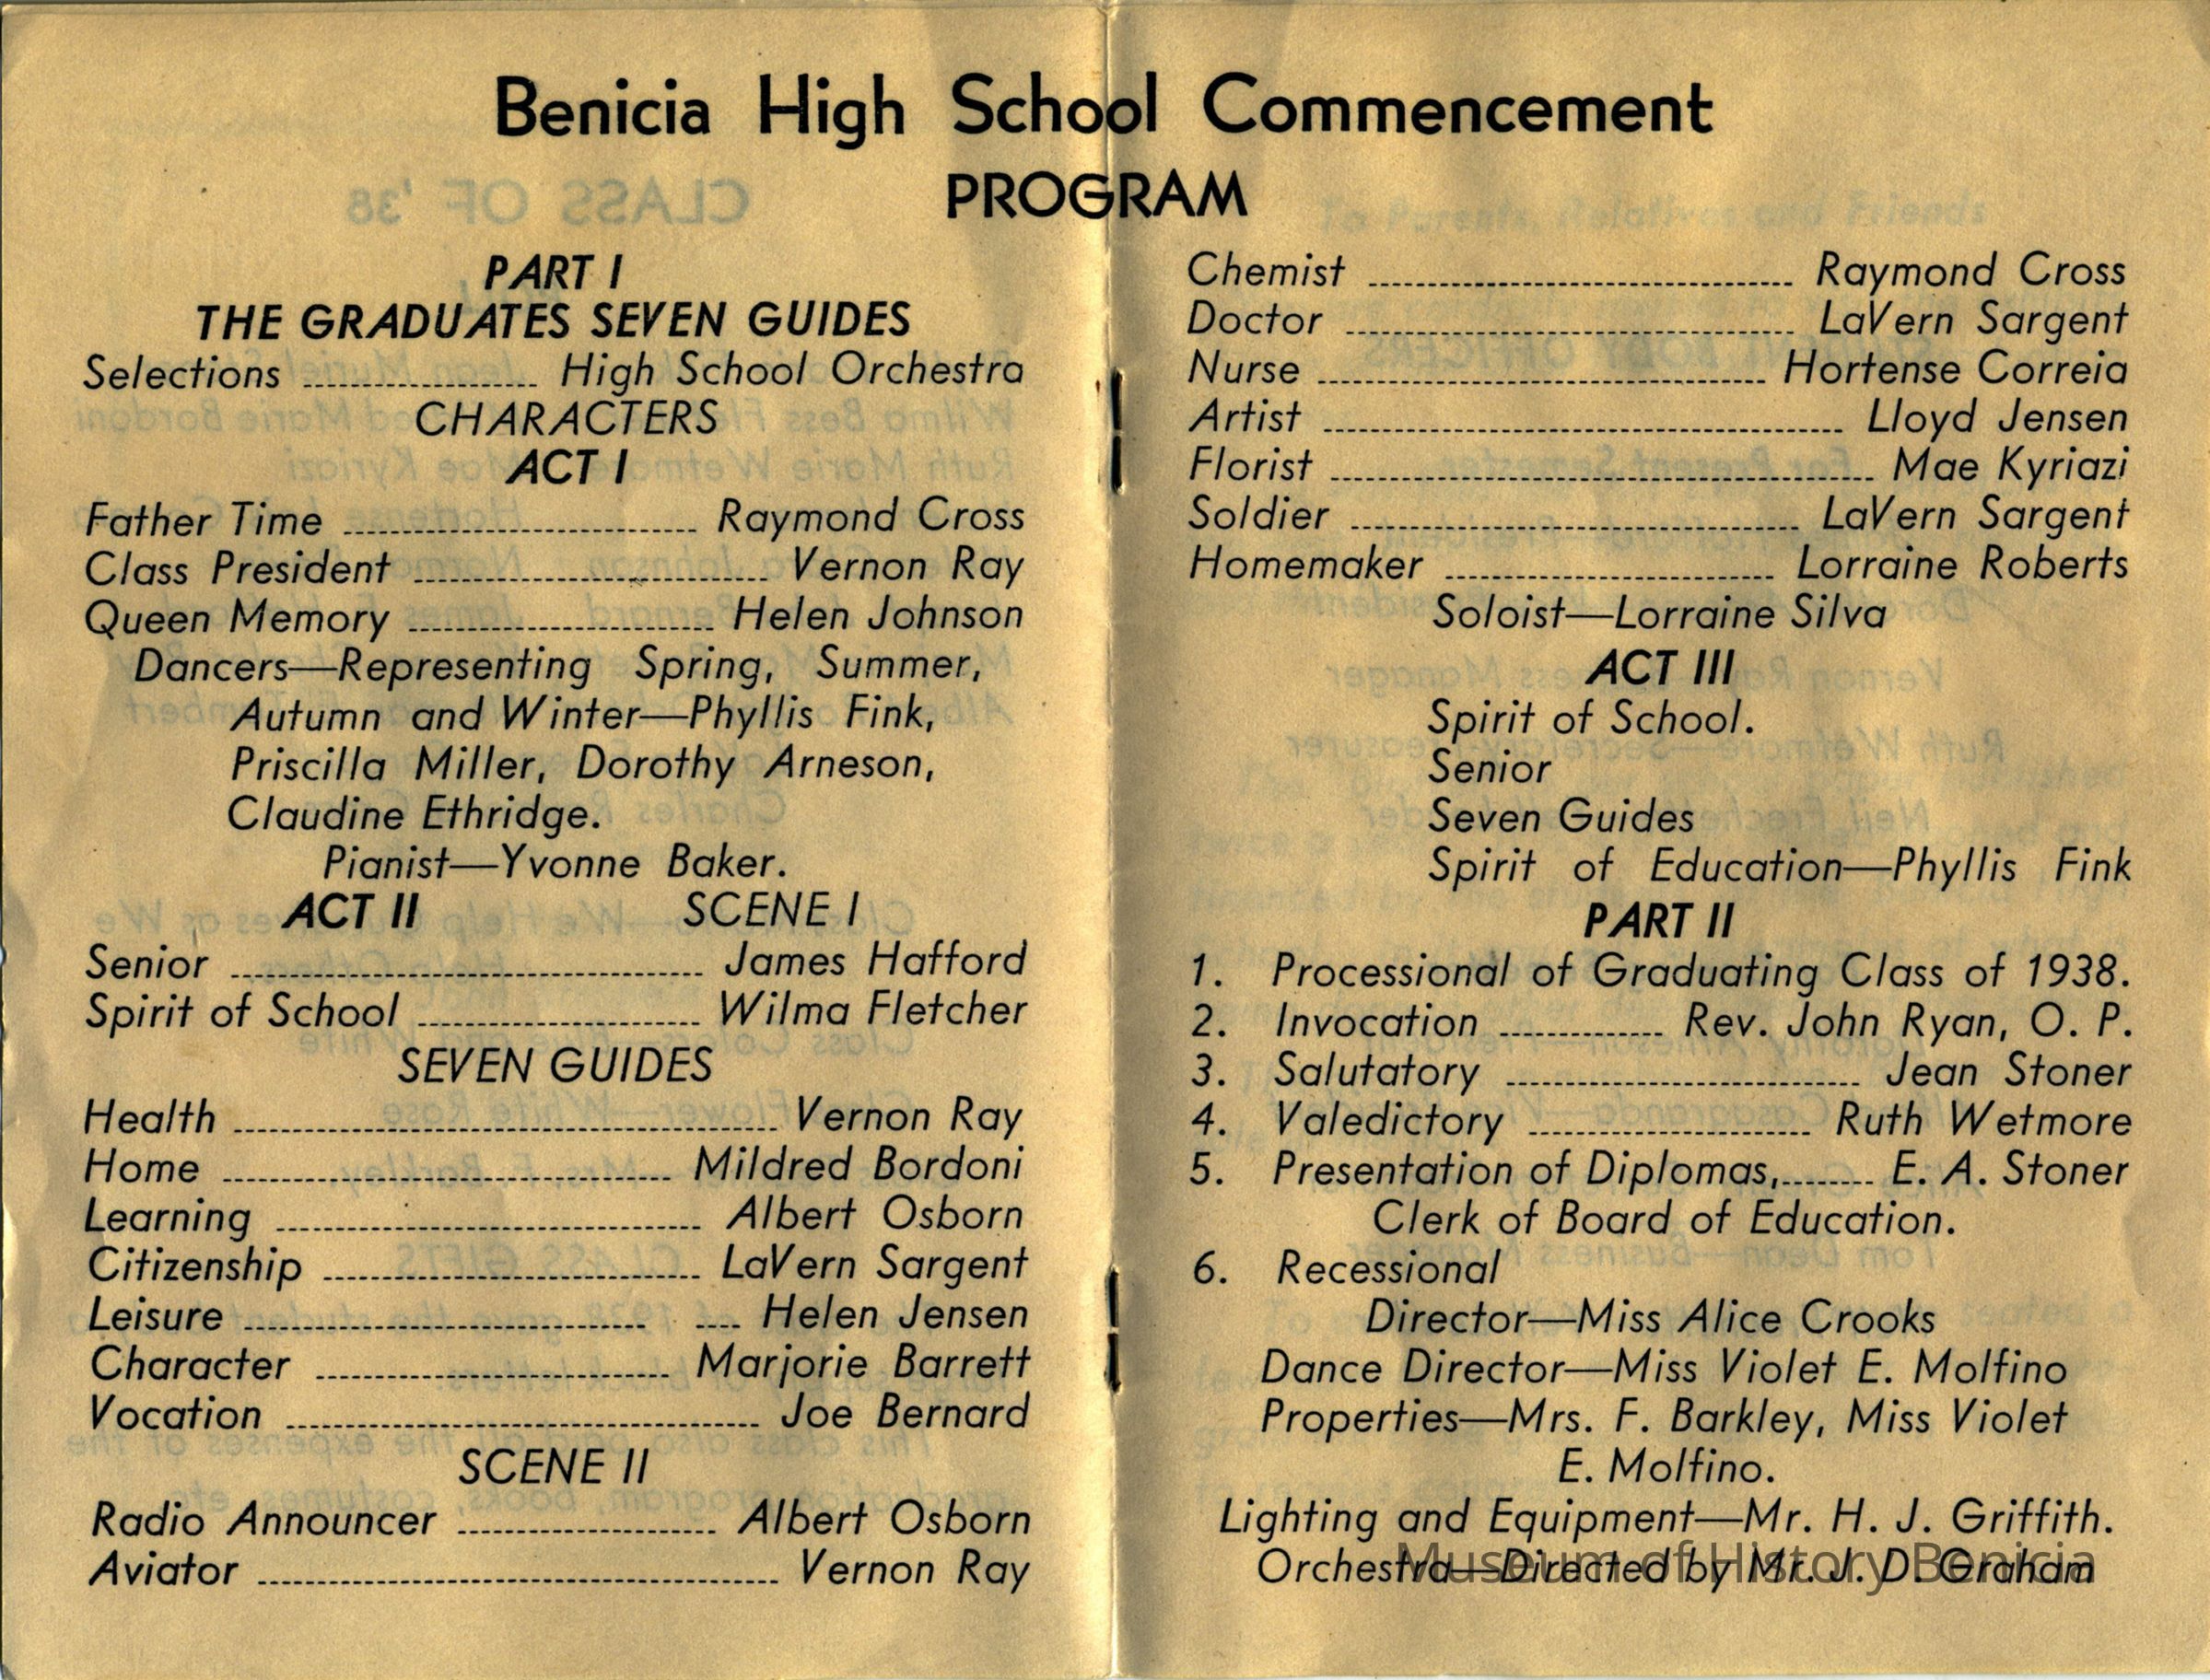 Benicia High School Commencement
PROGRAM
PART I
THE GRADUATES SEVEN GUIDES
Selections ---------- High School Orchestra
CHARACTERS
ACT I
Father Time ---------- Raymond Cross
Class President ---------- Vernon Ray
Queen Memory ---------- Helen Johnson
Dancers—Representing Spring, Summer,
Autumn and Winter—Phyllis Fink,
Priscilla Miller, Dorothy Arneson,
Claudine Ethridge.
Pianist—Yvonne Baker.
ACT II SCENE I
Senior ---------- James Hafford
Spirit of School ---------- Wilma Fletcher
SEVEN GUIDES
Health ---------- Vernon Ray
Home ---------- Mildred Bordoni
Learning ---------- Albert Osborn
Citizenship ---------- LaVern Sargent
Leisure ---------- Helen Jensen
Character ---------- Marjorie Barrett
Vocation ---------- Joe Bernard
SCENE II
Radio Announcer ---------- Albert Osborn
Aviator ---------- Vernon Ray
Chemist ---------- Raymond Cross
Doctor ---------- LaVern Sargent
Nurse ---------- Hortense Correia
Artist ---------- Lloyd Jensen
Florist ---------- Mae Kyriazi
Soldier ---------- LaVern Sargent
Homemaker ---------- Lorraine Roberts
Soloist—Lorraine Silva
ACT III
Spirit of School.
Senior
Seven Guides
Spirit of Education—Phyllis Fink
PART II
1. Processional of Graduating Class of 1938.
2. Invocation ---------- Rev. John Ryan, O. P.
3. Salutatory ---------- Jean Stoner
4. Valedictory ---------- Ruth Wetmore
5. Presentation of Diplomas,-------- E. A. Stoner
Clerk of Board of Education.
6. Recessional
Director—Miss Alice Crooks
Dance Director—Miss Violet E. Molfino
Properties—Mrs. F. Barkley, Miss Violet
E. Molfino.
Lighting and Equipment—Mr. H. J. Griffith.
Orchestra—Directed by Mr. J. D. Graham
Museum of History Benicia